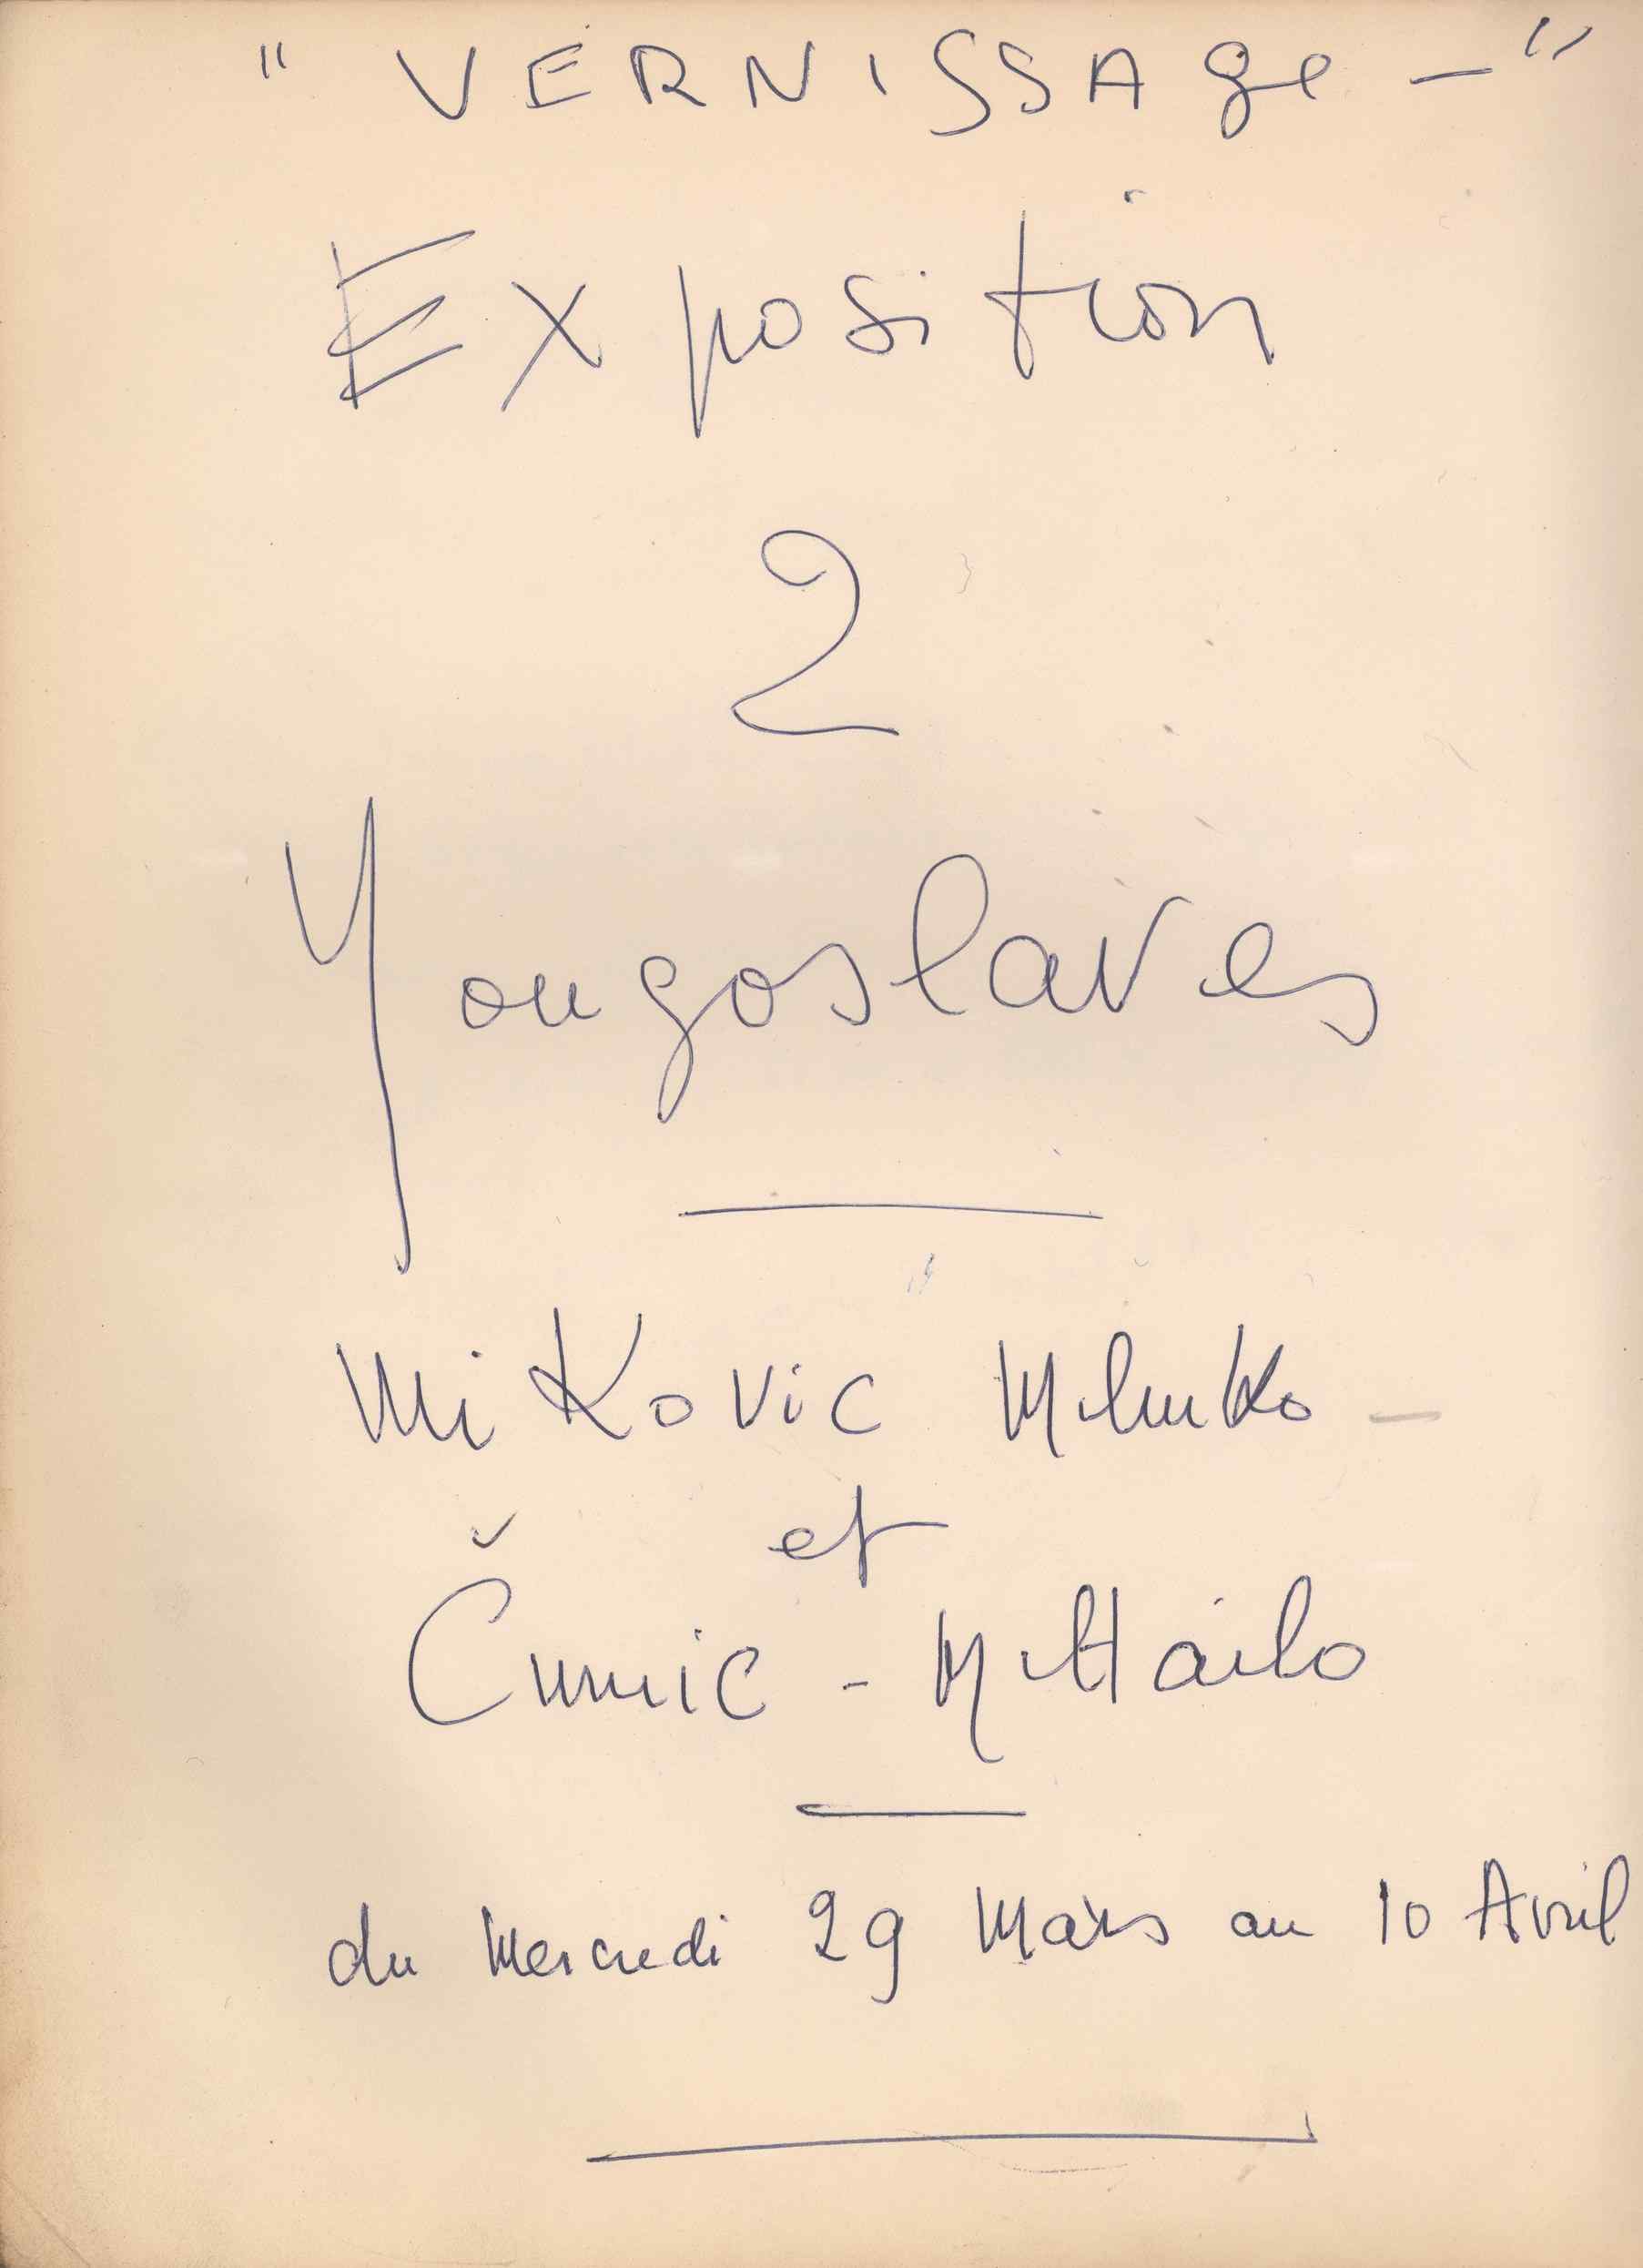 " VERNISSAge - "
Exposition
2
Yougoslaves
MiKovic
et
Čumic - MiHailo
du Mercredi 29 Mars au 10 Avril